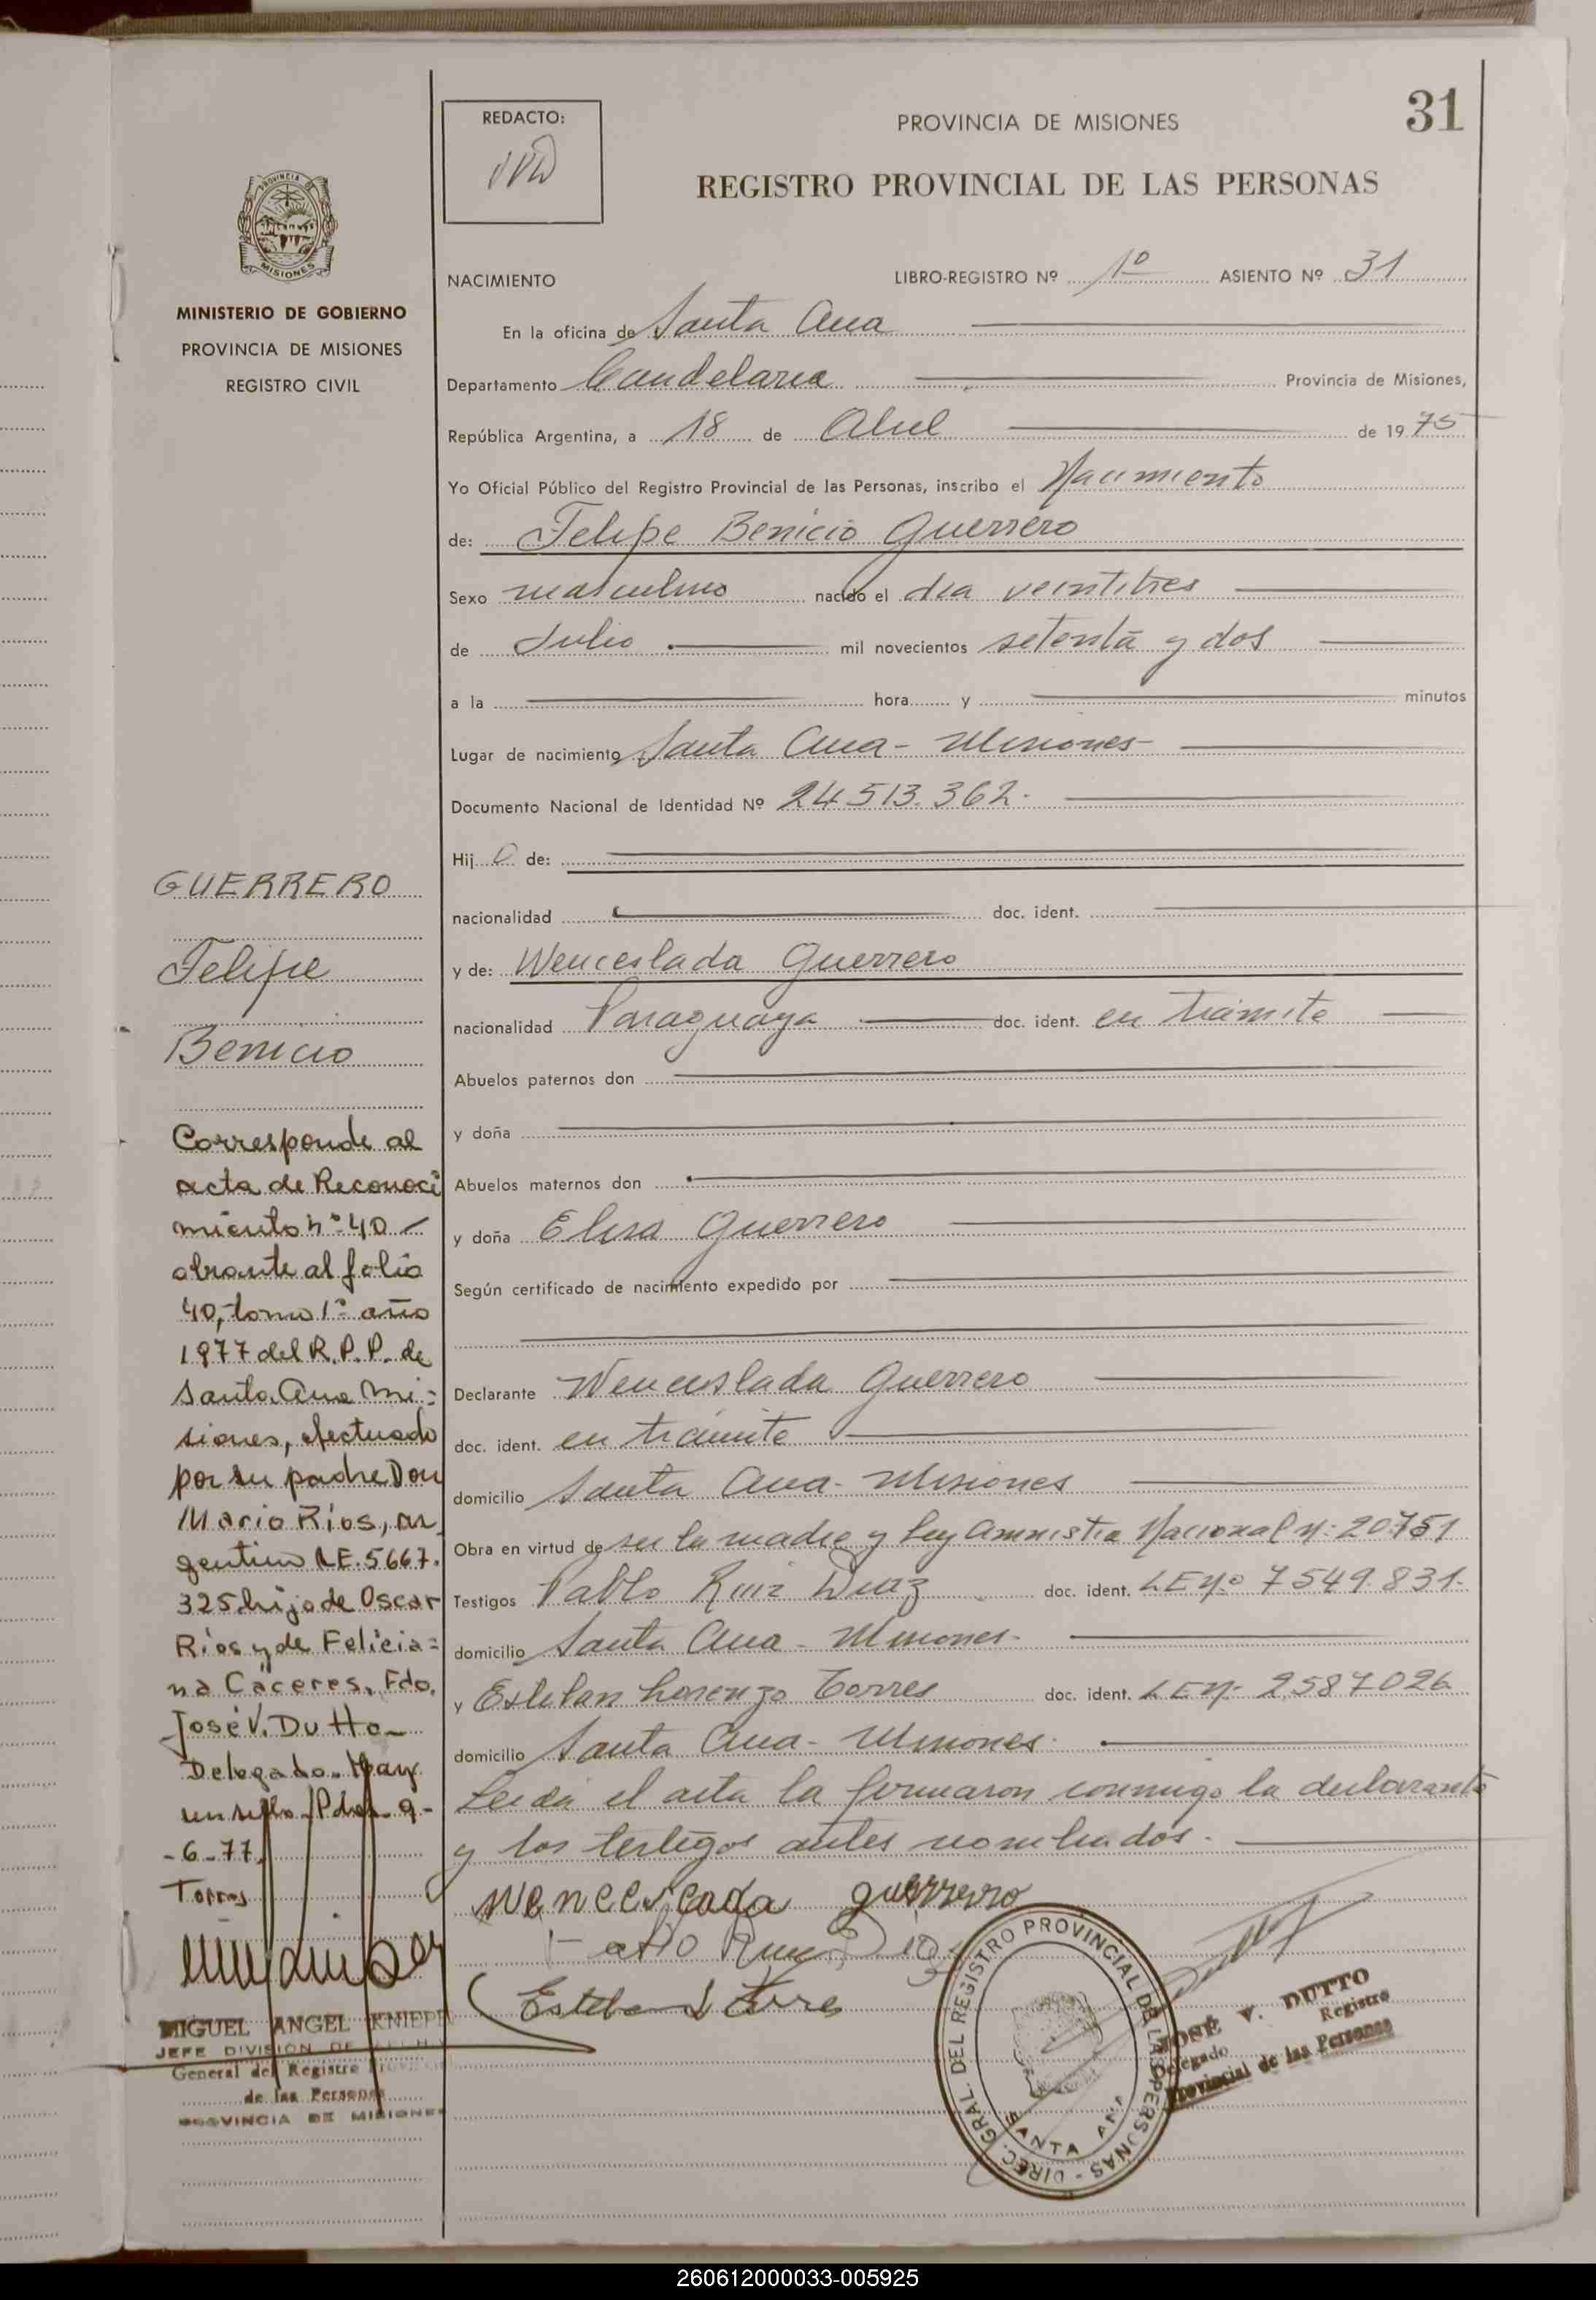 31
REDACTO:
PROVINCIA DE MISIONES
REGISTRO PROVINCIAL DE LAS PERSONAS
PROVINCIA DE
MISIONES
MINISTERIO DE GOBIERNO
PROVINCIA DE MISIONES
REGISTRO CIVIL
NACIMIENTO LIBRO-REGISTRO Nº 1º ASIENTO Nº 31
En la oficina de Santa Ana
Departamento Candelaria Provincia de Misiones,
República Argentina, a 18 de Abril de 1975
Yo Oficial Público del Registro Provincial de las Personas, inscribo el Nacimiento
de: Felipe Benicio Guerrero
Sexo masculino nacido el dia veintitres
de Julio mil novecientos setenta y dos
a la hora y minutos
Lugar de nacimiento Santa Ana - Misiones
Documento Nacional de Identidad Nº 24.513.362.
Hij o de:
nacionalidad doc. ident.
y de: Wenceslada Guerrero
nacionalidad Paraguaya doc. ident. en trámite
Abuelos paternos don
y doña
Abuelos maternos don
y doña Elisa Guerrero
Según certificado de nacimiento expedido por
Declarante Wenceslada Guerrero
doc. ident. en trámite
domicilio Santa Ana - Misiones
Obra en virtud de ser la madre y Ley Amnistia Nacional nº: 20.751
Testigos Pablo Ruiz Diaz doc. ident. LE Nº 7549.831.
domicilio Santa Ana - Misiones.
y Esteban Lorenzo Torres doc. ident. LE nº 2.587.026
domicilio Santa Ana - Misiones.
Leida el acta la firmaron conmigo la declarante
y los testigos antes nombrados.
Wenceslada guerrero
Ruiz
Esteban L Torres
GUERRERO
Felipe
Benicio
Corresponde al
acta de Reconoci
miento nº 40
obrante al folio
40, tomo 1º año
1977 del R.P.P. de
Santa Ana Mi=
siones, efectuado
por su padre Don
Mario Ríos, ar
gentino LE. 5667.
325 hijo de Oscar
Ríos y de Felicia=
na Cáceres. Fdo.
José V. Dutto
Delegado. Hay
un sello. Pdas. 9-
-6-77.
Torres
MIGUEL ANGEL KNIEPP
JEFE DIVISION DE
General del Registro
de las Personas
PROVINCIA DE MISIONES
DIREC. GRAL. DEL REGISTRO PROVINCIAL DE LAS PERSONAS -
SANTA ANA
JOSE V. DUTTO
Delegado Registro
Provincial de las Personas
260612000033-005925